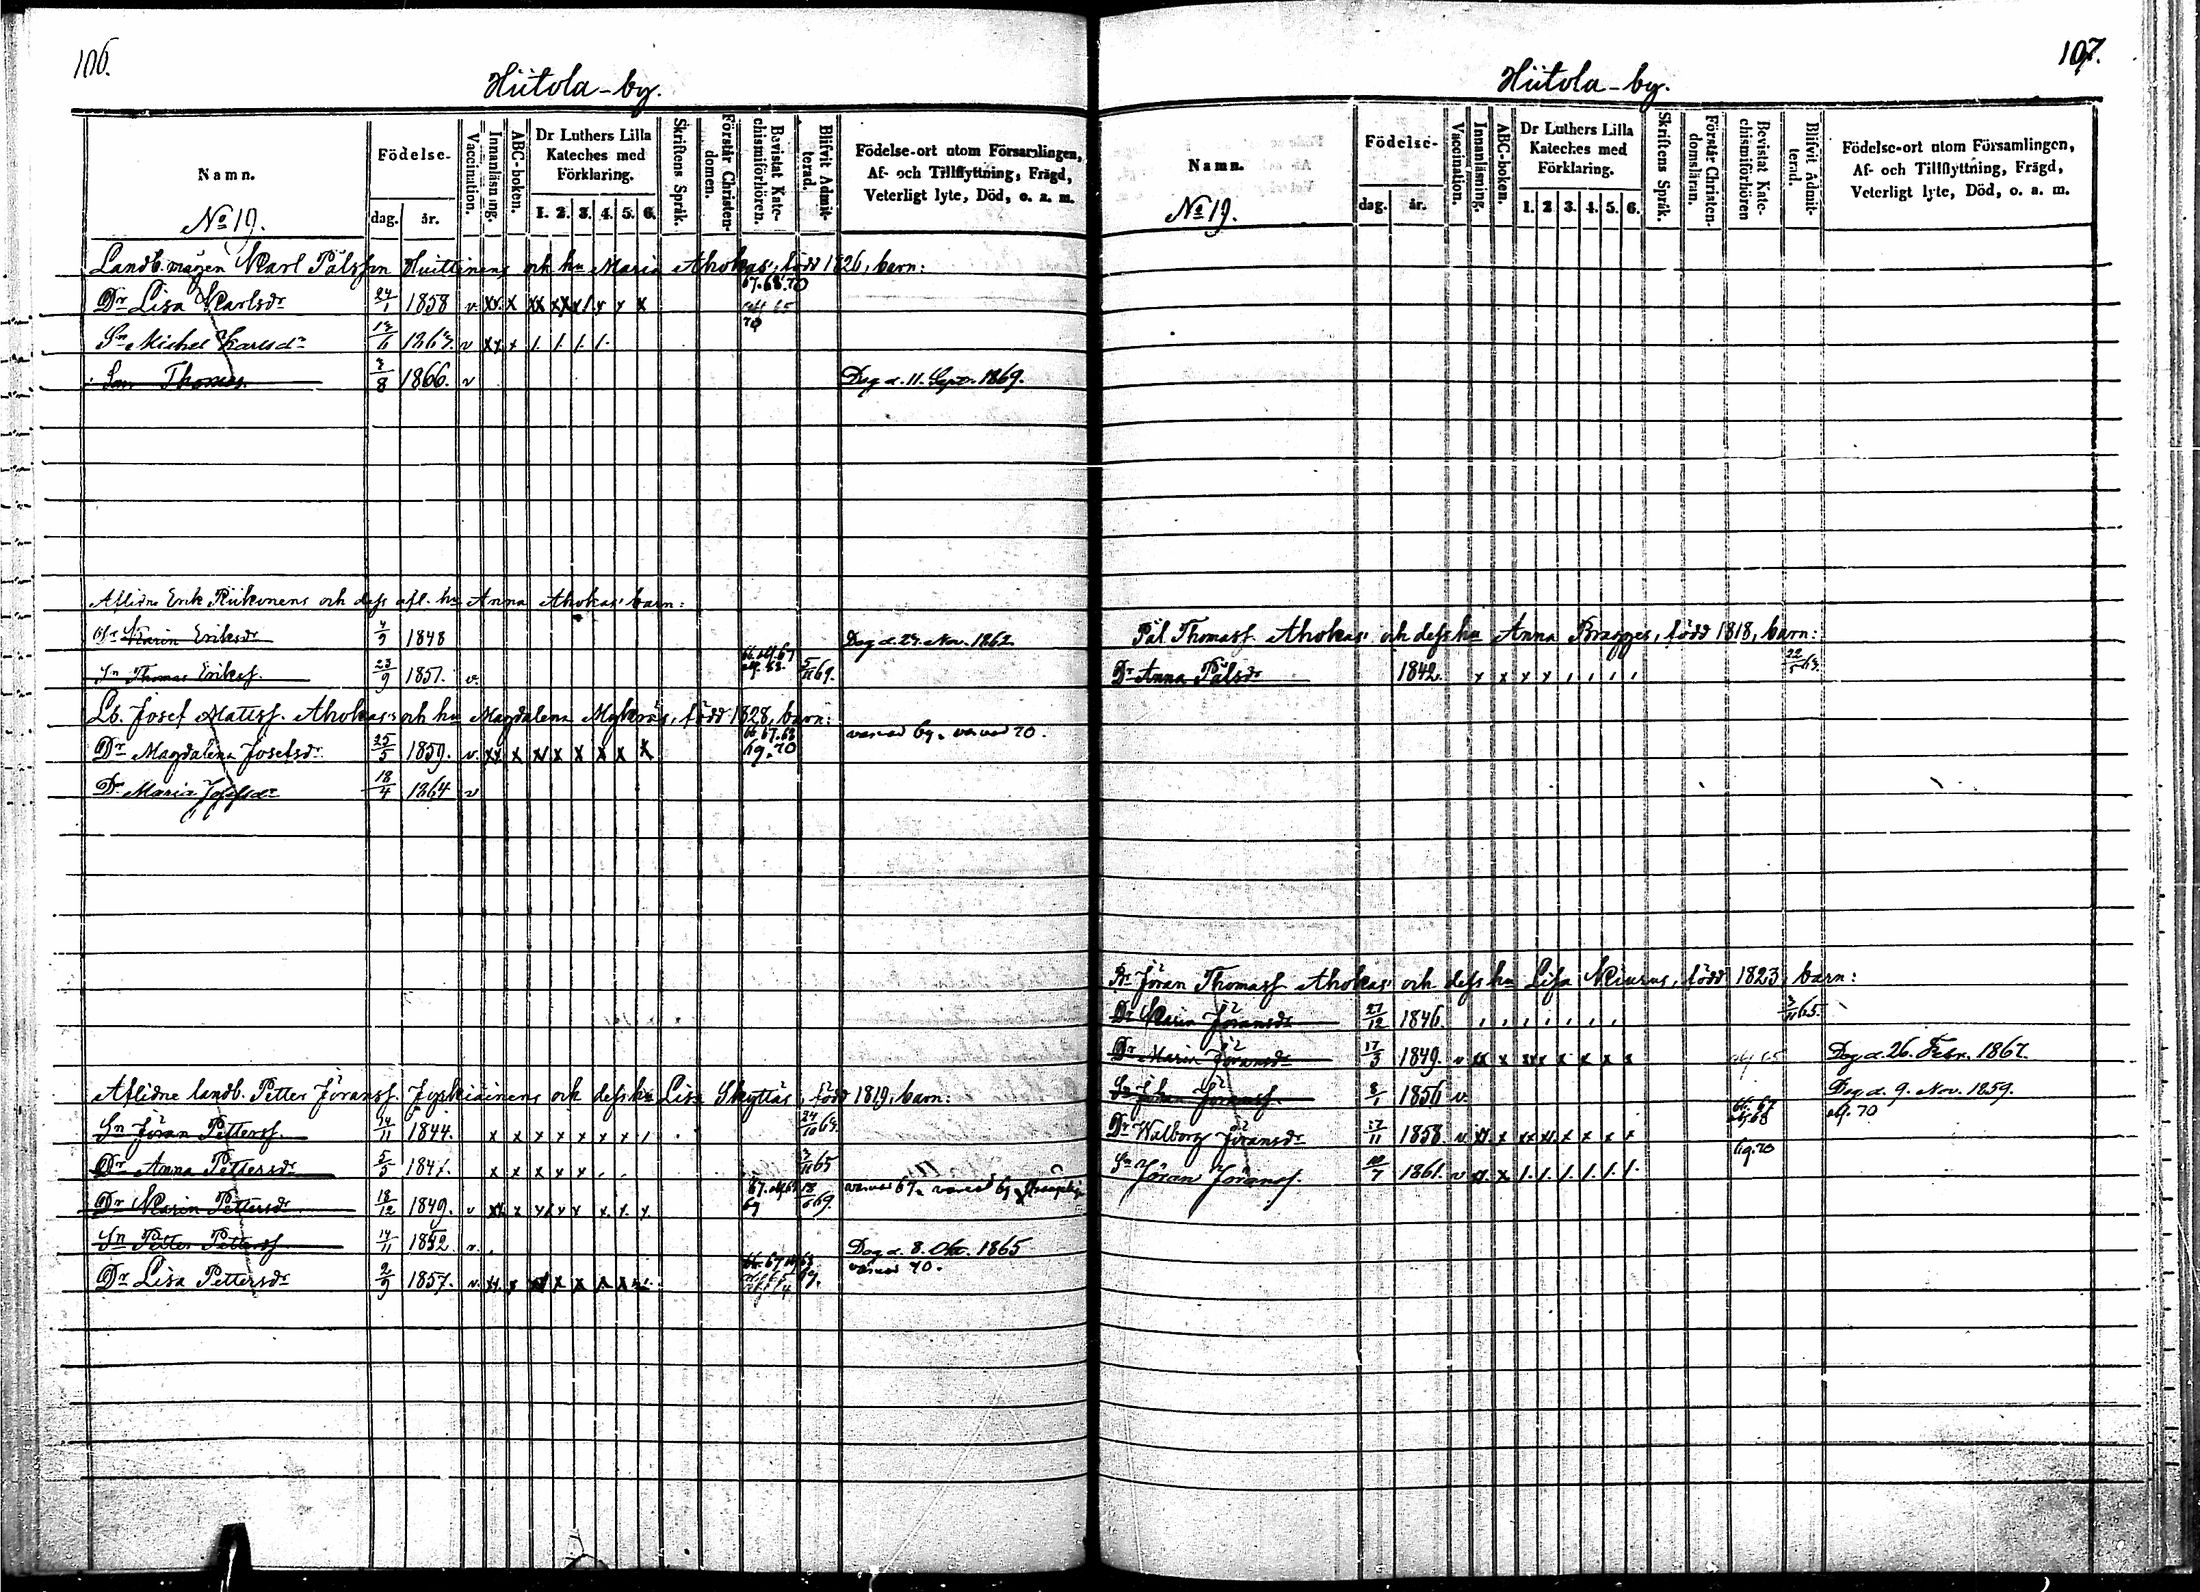 106.
Hiitola-by.
Namn.
Födelse-
dag. år.
Vaccination.
Innanläsning.
ABC-boken.
Dr Luthers Lilla Kateches med Förklaring.
1. 2. 3. 4. 5. 6.
Skriftens Språk.
Förstår Christen-domen.
Bevistat Kate-chismiförhören.
Blifvit Admit-terad.
Födelse-ort utom Församlingen,
Af- och Tillflyttning, Frägd,
Veterligt lyte, Död, o. a. m.
No 19.
Landb. mågen Karl Pålsson Huittinens och hu Maria Ahokas, född 1826, barn:
67. 68. 70
Dr Lisa Karlsdr 24/1 1858 v. xx x xx xx x/ x x x
70
Sn Michel Karlsd
v xx x /. /. /. /.
Son Thomas 2/8 1866. v Dog d. 11. Sept. 1869.
Aflidne Erik Riikonens och dess afl. hu Anna Ahokas' barn:
Dr Karin Eriksdr 4/9 1848 Dog d. 24. Nov. 1862
Sn Thomas Erikss. 23/9 1851. v. 5/11 69.
Lb. Josef Mattss. Ahokas' och hu Magdalena Mykräs, född 1828, barn:
66. 67. 68
Dr Magdalena Josefsdr 25/5 1859. v. xx x x/ x x x x x 69. 70
Dr Maria Josefsdr 18/4 1864 v
Aflidne landb. Petter Jöranss. Jyskiäinens och dess hu Lisa Skyttäs, född 1819, barn:
Sn Jöran Petterss. 14/11 1844. x x x x x x x / 24/10 63
Dr Anna Pettersdr 5/5 1847. x x x x x , , 3/11 65
Dr Karin Pettersdr 18/12 1849. v xx x x/ x x x. x. x. 69 69.
Sn Petter Petterss 14/11 1852 v. Dog d. 8. Okt. 1865
Dr Lisa Pettersdr 2/9 1857. v. x x x x x x
107.
Hiitola-by.
Namn.
Födelse-
dag. år.
Vaccination.
Innanläsning.
ABC-boken.
Dr Luthers Lilla Kateches med Förklaring.
1. 2. 3. 4. 5. 6.
Skriftens Språk.
Förstår Christen-domsläran.
Bevistat Kate-chismiförhören
Blifvit Admit-terad.
Födelse-ort utom Församlingen,
Af- och Tillflyttning, Frägd,
Veterligt lyte, Död, o. a. m.
No 19.
Pål Thomass. Ahokas' och dess hu Anna Bragges, född 1818, barn:
Dr Anna Pålsdr 1842. x x x x , , , ,
Br Jöran Thomass Ahokas' och dess hu Lisa Kiurus, född 1823, barn:
Dr Karin Jöransdr 27/12 1846. , , , , , , , , 3/11 65.
Dr Maria Jöransdr 17/3 1849. v xx x xxx x x x x Dog d. 26. Febr. 1867.
Sn Johan Jöranss. 8/1 1856 v. Dog d. 9. Nov. 1859.
66. 67
Dr Walborg Jöransdr 17/11 1858. v xx. x xx xx. x x x x
69. 70
Sn Jöran Jöranss. 1861. v xx. x /. /. /. /. /. /.